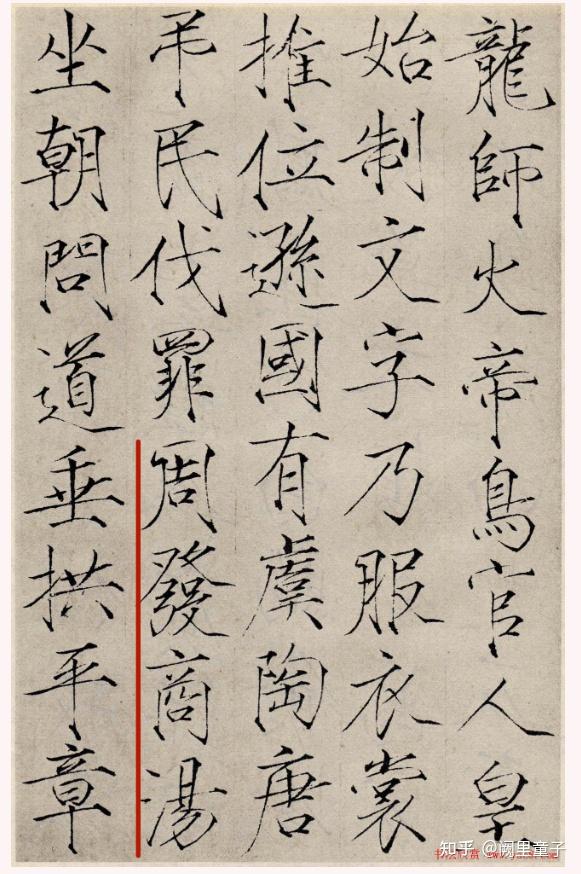 龍師火帝鳥官人皇
始制文字乃服衣裳
推位遜國有虞陶唐
弔民伐罪周發商湯
坐朝問道垂拱平章
知乎 @阙里童子
书法欣赏